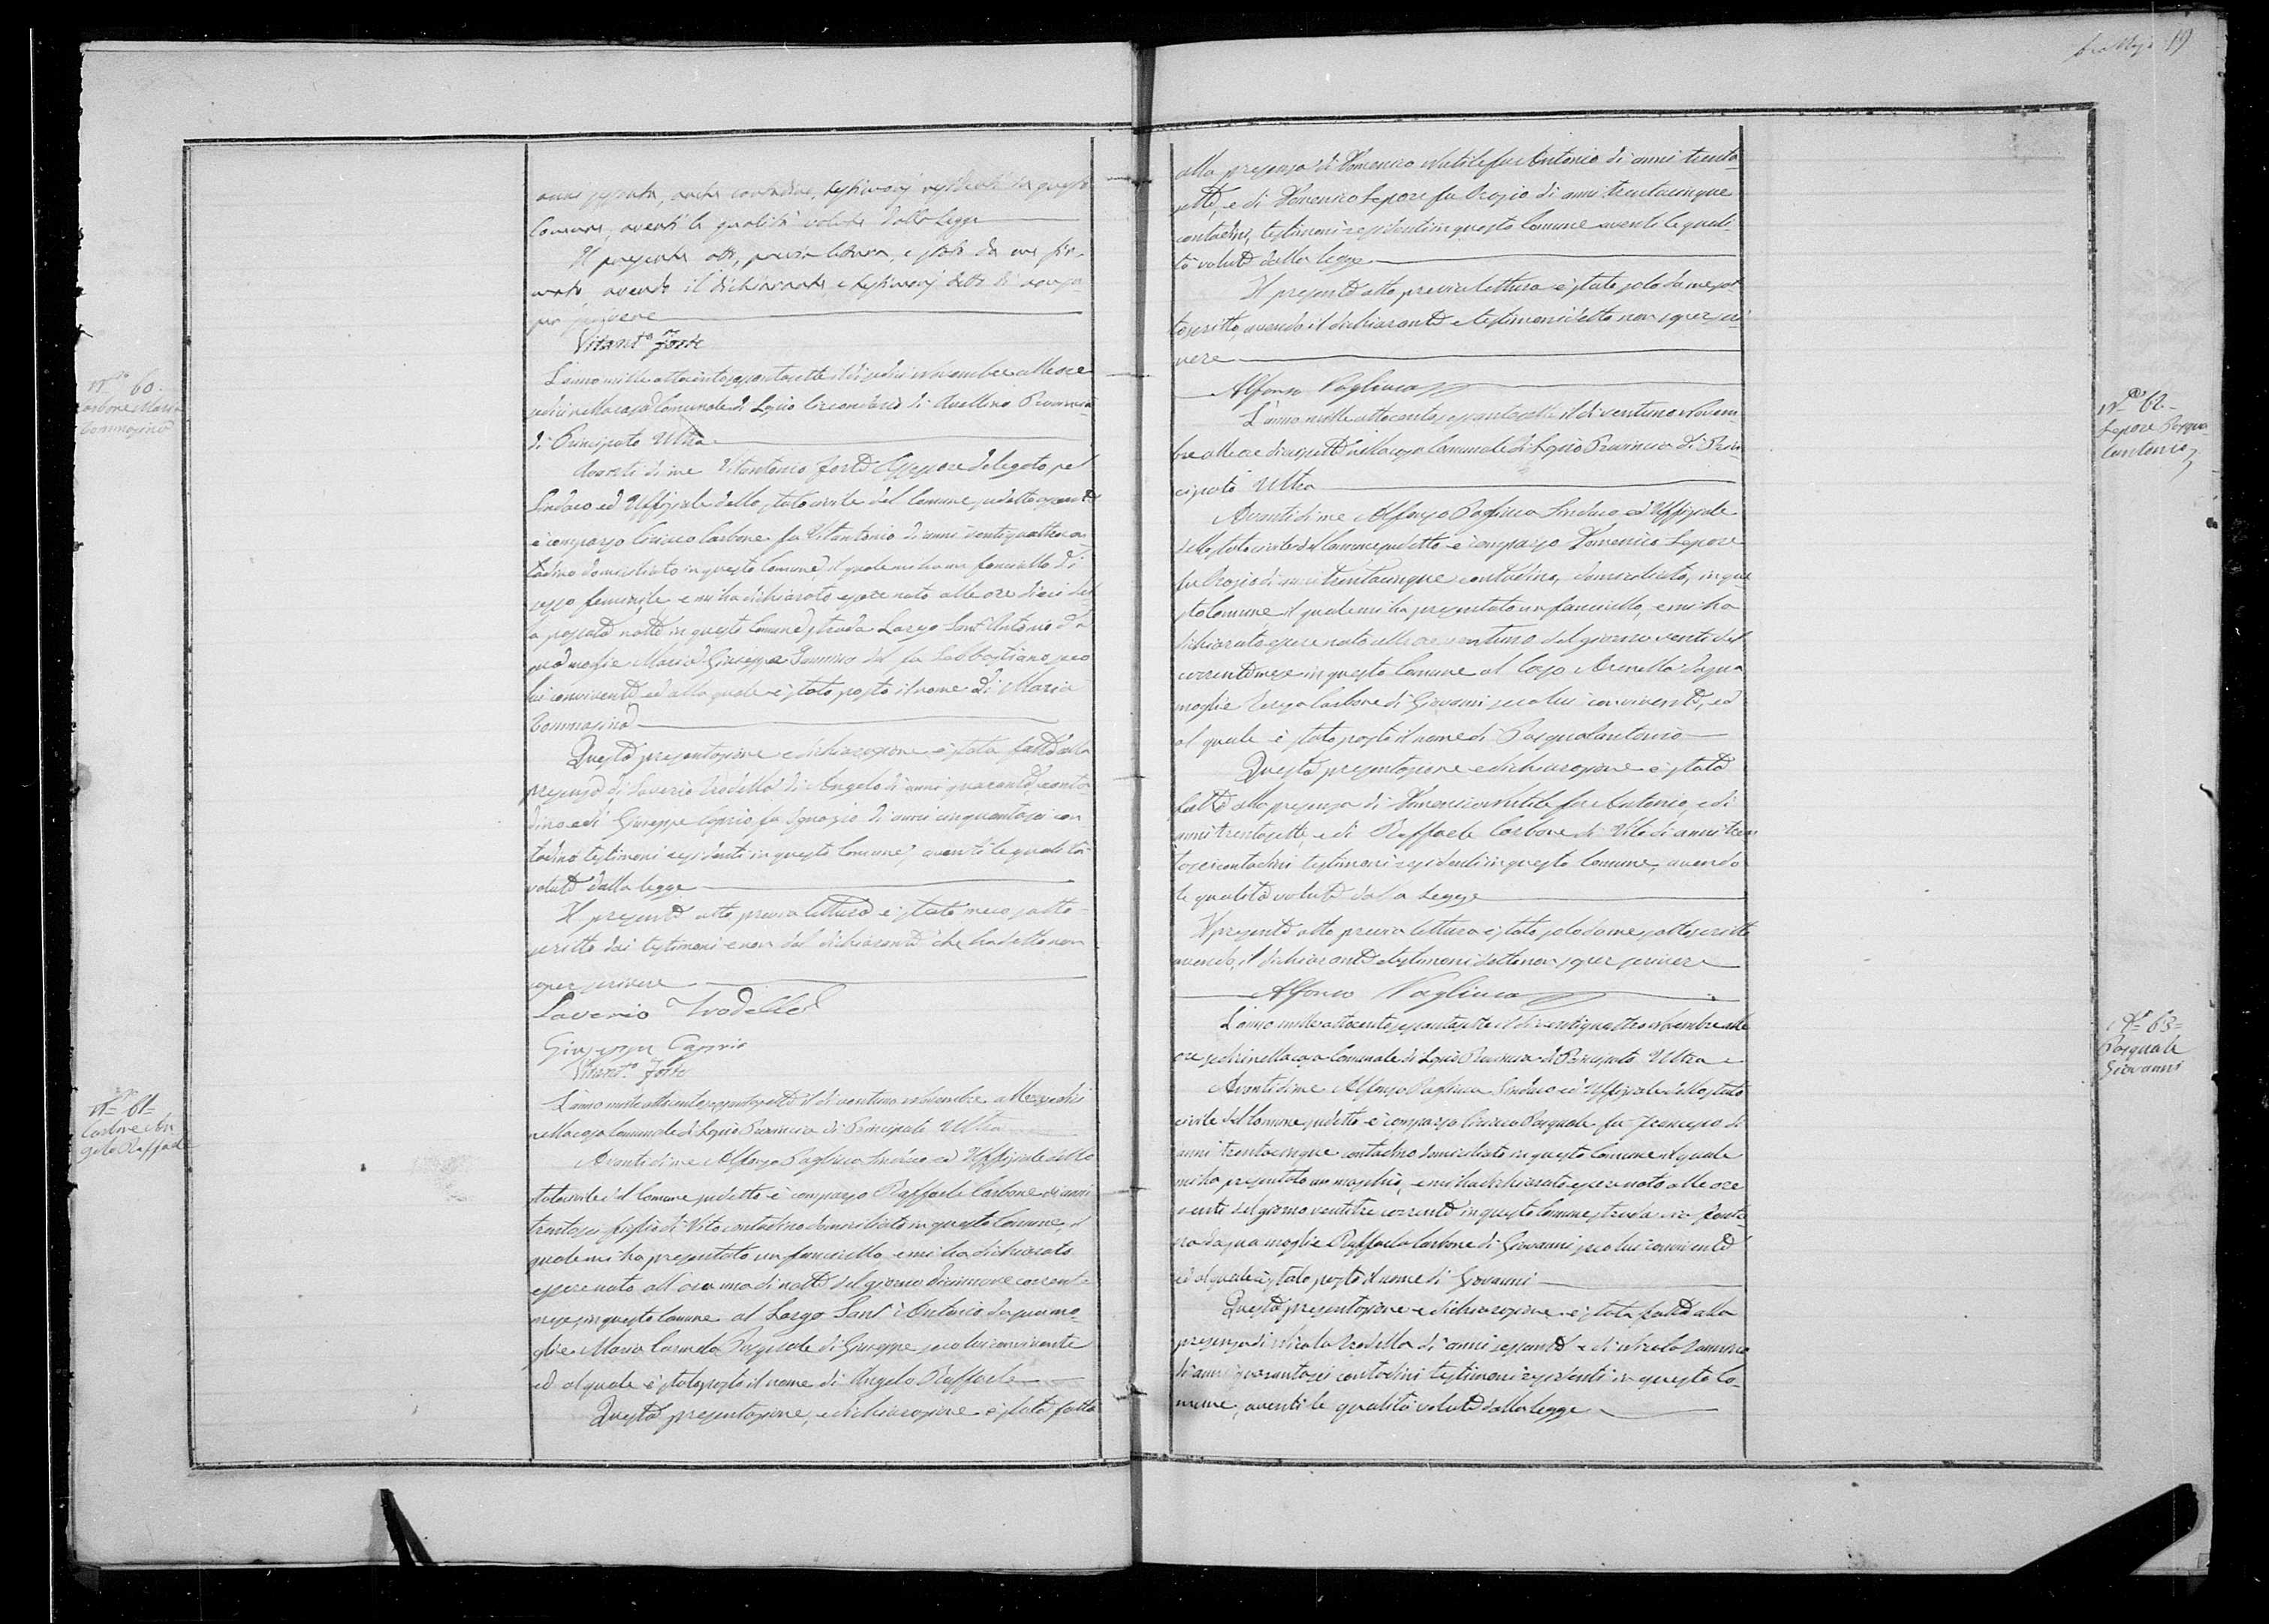 anni sessanta, anche contadino, testimonj residenti in questo
Comune, aventi le qualità volute dalla legge
Il presente atto, previa lettura, è stato da me fir-
mato, avendo il dichiarante e testimonj detto di non sa-
per scrivere
Vitant.o Forte
N.o 60.
Carbone Maria
Tommasina
L'anno mille ottocentosessantasette il dì sedici novembre alle ore
sedici nella casa Comunale di Circondario di Avellino Provincia
di Principato Ultra
Avanti di me Vitantonio Forte Assessore delegato pel
Sindaco ed Uffiziale dello stato civile del Comune sudetto
è comparso Ciriaco Carbone fu Vitantonio di anni ventiquattro con
tadino domiciliato in questo Comune, il quale mi ha un fanciullo di
sesso feminile e mi ha dichiarato essere nato alle ore dieci del
la passata notte in questo Comune strada Largo Sant'Antonio da
sua moglie Maria Giuseppa del fu Sabbastiano seco
lui convivente ed alla quale è stato posto il nome di Maria
Tommasina
Questa presentazione e dichiarazione è stata fatta alla
presenza di Saverio Tradella di Angelo di anni quaranta conta
dino e di Giuseppe Caprio fu Ignazio di anni cinquantasei con
tadino testimoni residenti in questo Comune, aventi le qualità
volute dalla legge
Il presente atto previa lettura è stato meco sotto-
scritto dai testimoni e non dal dichiarante che ha detto non
saper scrivere
Saverio Tradella
Giuseppe Caprio
Vitant.o Forte
N.o 61=
Carbone An
gelo Raffaele
L'anno mille ottocentosessantasette il dì ventuno novembre alle ore sedici
nella casa Comunale di Provincia di Principato Ultra
Avanti di me Alfonso Pagliuca Sindaco ed Uffiziale dello
stato civile del Comune sudetto è comparso Raffaele Carbone di anni
trentasei figlio di Vito contadino domiciliato in questo Comune, il
quale mi ha presentato un fanciullo e mi ha dichiarato
essere nato all'ora una di notte del giorno diciannove corrente
mese, in questo Comune al Largo Sant'Antonio da sua mo-
glie Maria Carmela Pasquale di Giuseppe seco lui convivente
ed al quale è stato posto il nome di Angelo Raffaele
Questa presentazione, e dichiarazione è stata fatta
19
alla presenza di Domenico Nutile fu Antonio di anni trenta
sette, e di Domenico Lepore fu Orazio di anni trentacinque
contadini, testimoni residenti in questo Comune aventi le quali-
tà volute dalla legge
Il presente atto previa lettura è stato solo da me sot
toscritto, avendo il dichiarante e testimoni detto non saper scri
vere
Alfonso Pagliuca
N.o 62=
Lepore Pasqua
lantonio
L'anno mille ottocentosessantasette il dì ventuno Novem-
bre alle ore diciassette nella casa Comunale di Provincia di Prin
cipato Ultra
Avanti di me Alfonso Pagliuca Sindaco ed Uffiziale
dello stato civile del Comune sudetto è comparso Domenico Lepore
fu Orazio di anni trentacinque contadino, domiciliato, in que
sto Comune il quale mi ha presentato un fanciullo, e mi ha
dichiarato essere nato alle ore ventuno del giorno venti del
corrente mese in questo Comune al Largo da sua
moglie Teresa Carbone di Giovanni seco lui convivente, ed
al quale è stato posto il nome di Pasqualantonio
Questa presentazione e dichiarazione è stata
fatta alla presenza di Domenico Nutile fu Antonio, e di
anni trentasette, e di Raffaele Carbone di Vito di anni tren
tasei contadini testimoni residenti in questo Comune, avendo
le qualità volute dalla Legge
Il presente atto previa lettura è stato solo da me sottoscritto
avendo, il dichiarante e testimoni detto non saper scrivere
Alfonso Pagliuca
N.o 63=
Pasquale
Giovanni
L'anno mille ottocentosessantasette il dì ventiquattro novembre alle
ore sedici nella casa Comunale di Provincia di Principato Ultra
Avanti di me Alfonso Pagliuca Sindaco ed Uffiziale dello stato
civile del Comune sudetto è comparso Ciriaco Pasquale fu Francesco di
anni trentacinque contadino domiciliato in questo Comune il quale
mi ha presentato un maschio, e mi ha dichiarato essere nato alle ore
venti del giorno ventitre corrente in questo Comune strada
da sua moglie Raffaela Carbone di Giovanni seco lui convivente
ed al quale è stato posto il nome di Giovanni
Questa presentazione e dichiarazione è stata fatta alla
presenza di Nicola Tradella di anni sessanta e di Nicola
di anni quarantasei contadini testimoni residenti in questo Co-
mune, aventi le qualità volute dalla legge